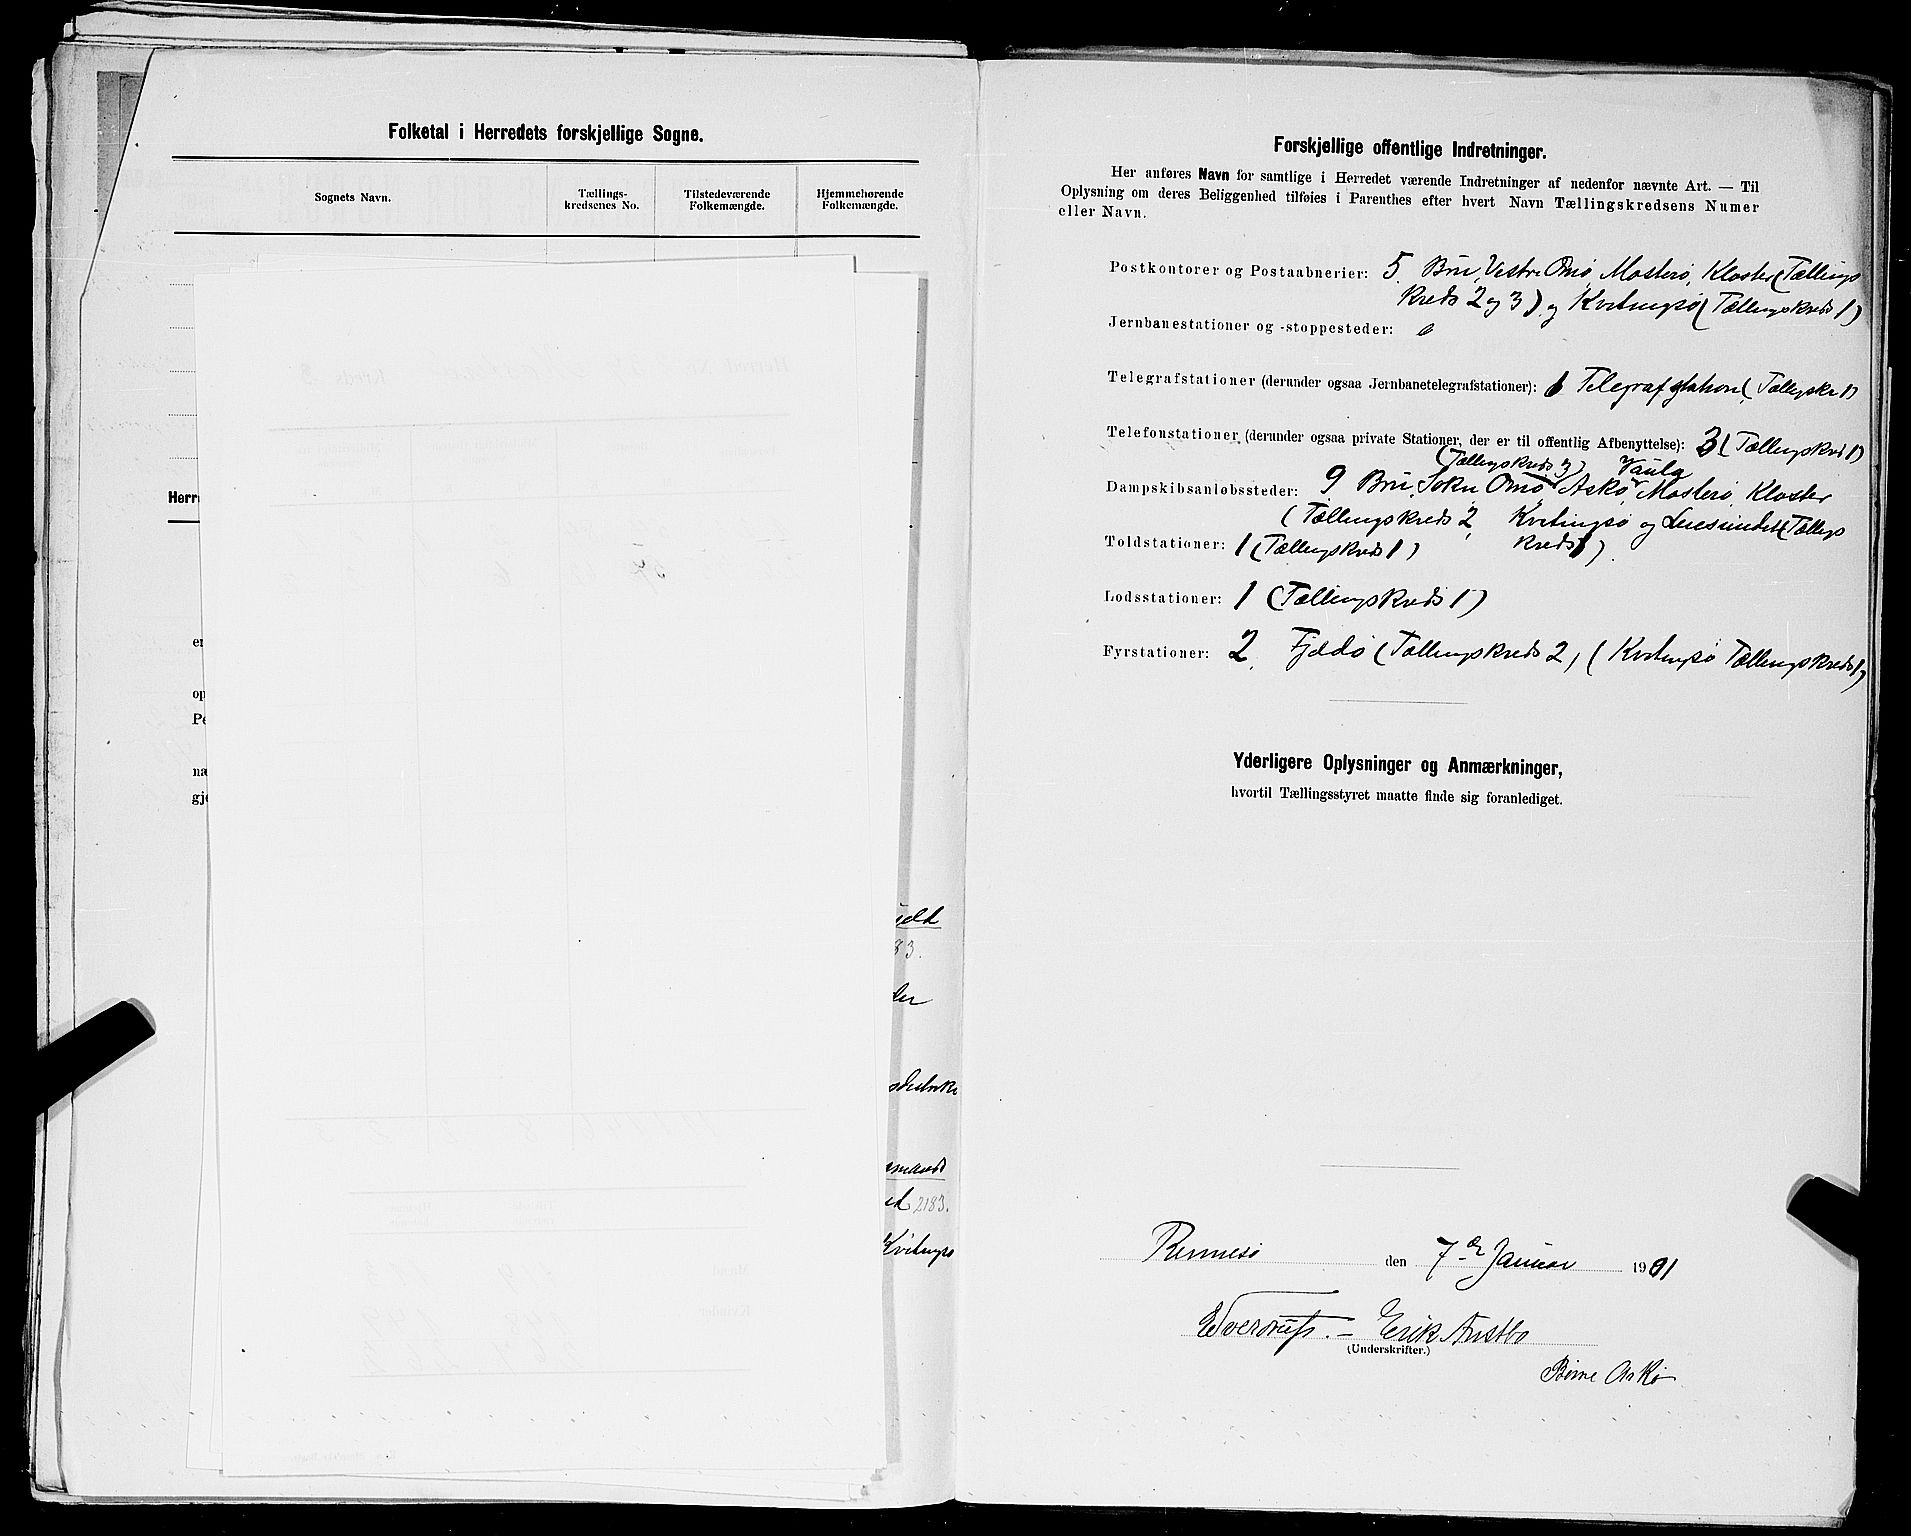 Folketal i Herredets forskjellige Sogne.
Sognets Navn.
Tællings-
kredsenes No.
Tilstedeværende
Folkemængde.
Hjemmehørende
Folkemængde.
Herr
er
op
Pe
næ
gje
83.
der
2183.
Kvitingsø
Forskjellige offentlige Indretninger.
Her anføres Navn for samtlige i Herredet værende Indretninger af nedenfor nævnte Art. — Til
Oplysning om deres Beliggenhed tilføies i Parenthes efter hvert Navn Tællingskredsens Numer
eller Navn.
Postkontorer og Postaabnerier: 5 Bru, Vestre Omø, Mosterø, Kloster (Tællings
kreds 2 og 3) og Kvitingsø (Tællingskreds 1)
Jernbanestationer og -stoppesteder: 0
Telegrafstationer (derunder ogsaa Jernbanetelegrafstationer): 1 Telegrafstation (Tællingskr 1)
Telefonstationer (derunder ogsaa private Stationer, der er til offentlig Afbenyttelse): 3 (Tællingskrd 1)
(Tællingskreds 3) Vaula
Dampskibsanløbssteder: 9 Bru, Sokn, Omø, Askø, Mosterø Kloster
(Tællingskreds 2, Kvitingsø og (Tællings
kreds 1).
Toldstationer: 1 (Tællingskreds 1)
Lodsstationer: 1 (Tællingskreds 1)
Fyrstationer: 2, Fjelø (Tællingskreds 2) (Kvitingsø Tællingskreds 1)
Yderligere Oplysninger og Anmærkninger,
hvortil Tællingsstyret maatte finde sig foranlediget.
Rennesø den 7de Januar 1901
Erik
(Underskrifter.)
Børne Askø